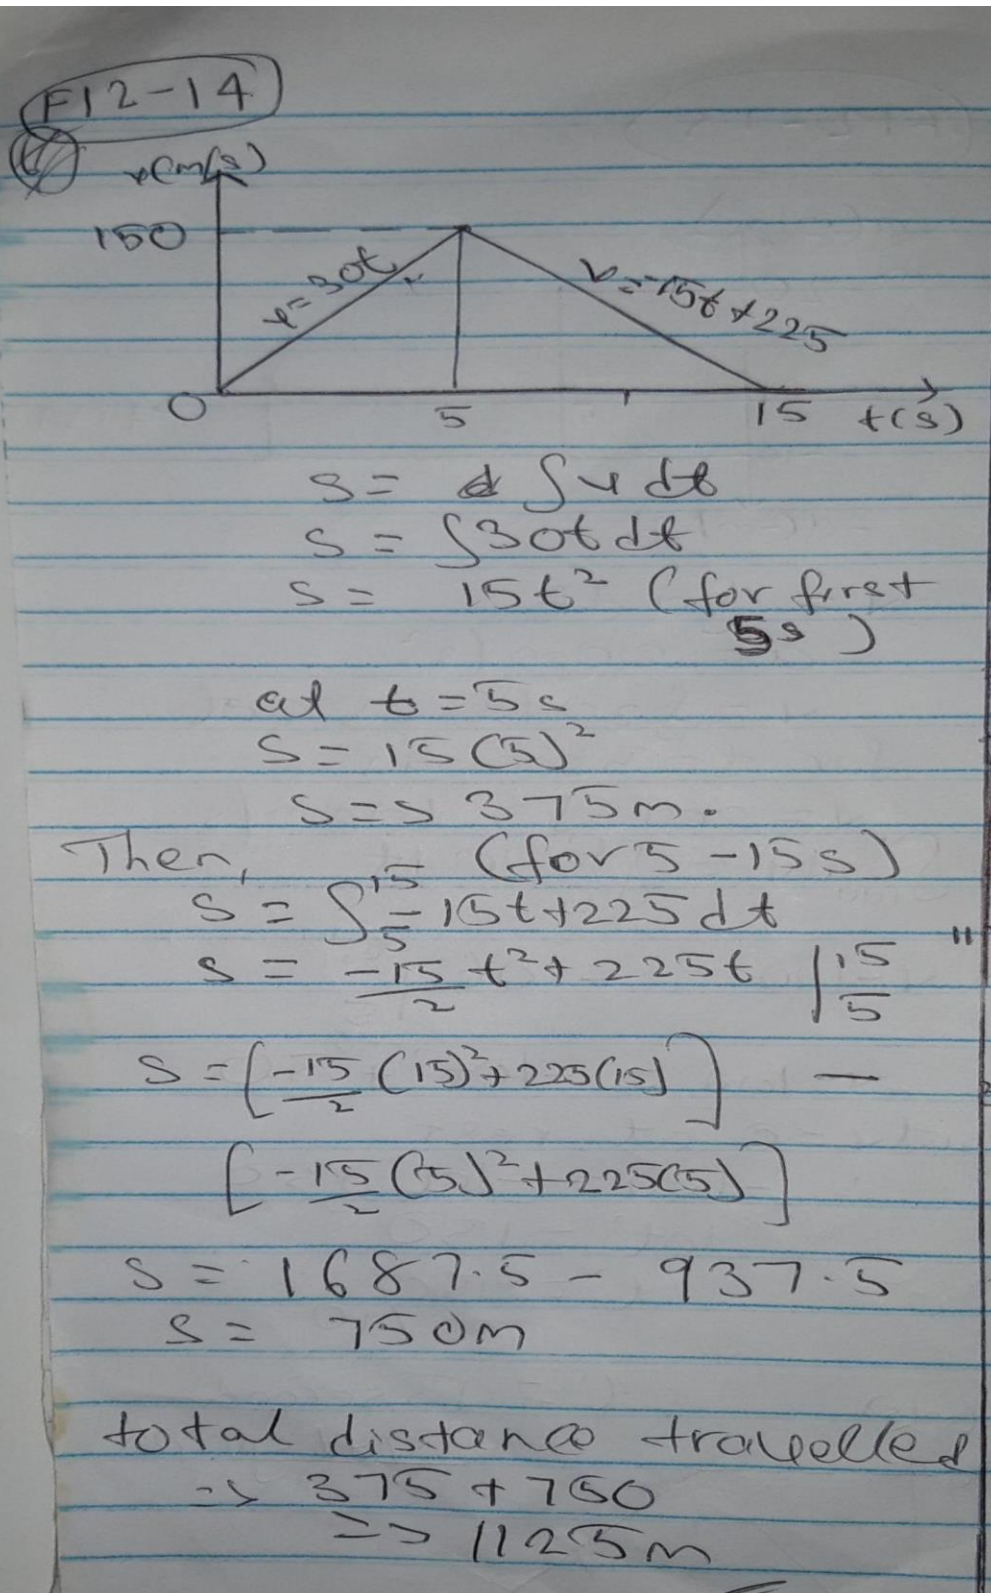 F12-14
v(m/s)
150
v=30t
v=-15t+225
0
5
15
t(s)
s= ∫v dt
s = ∫30t dt
s= 15t² (for first
5s)
at t=5s
s=15(5)²
s=> 375m.
Then, (for 5-15s)
s = ∫₅¹⁵ -15t+225 dt
s = -15/2 t²+225t |₅¹⁵
s=[-15/2 (15)²+225(15)] —
[-15/2 (5)²+225(5)]
s=1687.5 - 937.5
s= 750m
total distance travelled
=> 375+750
=> 1125m